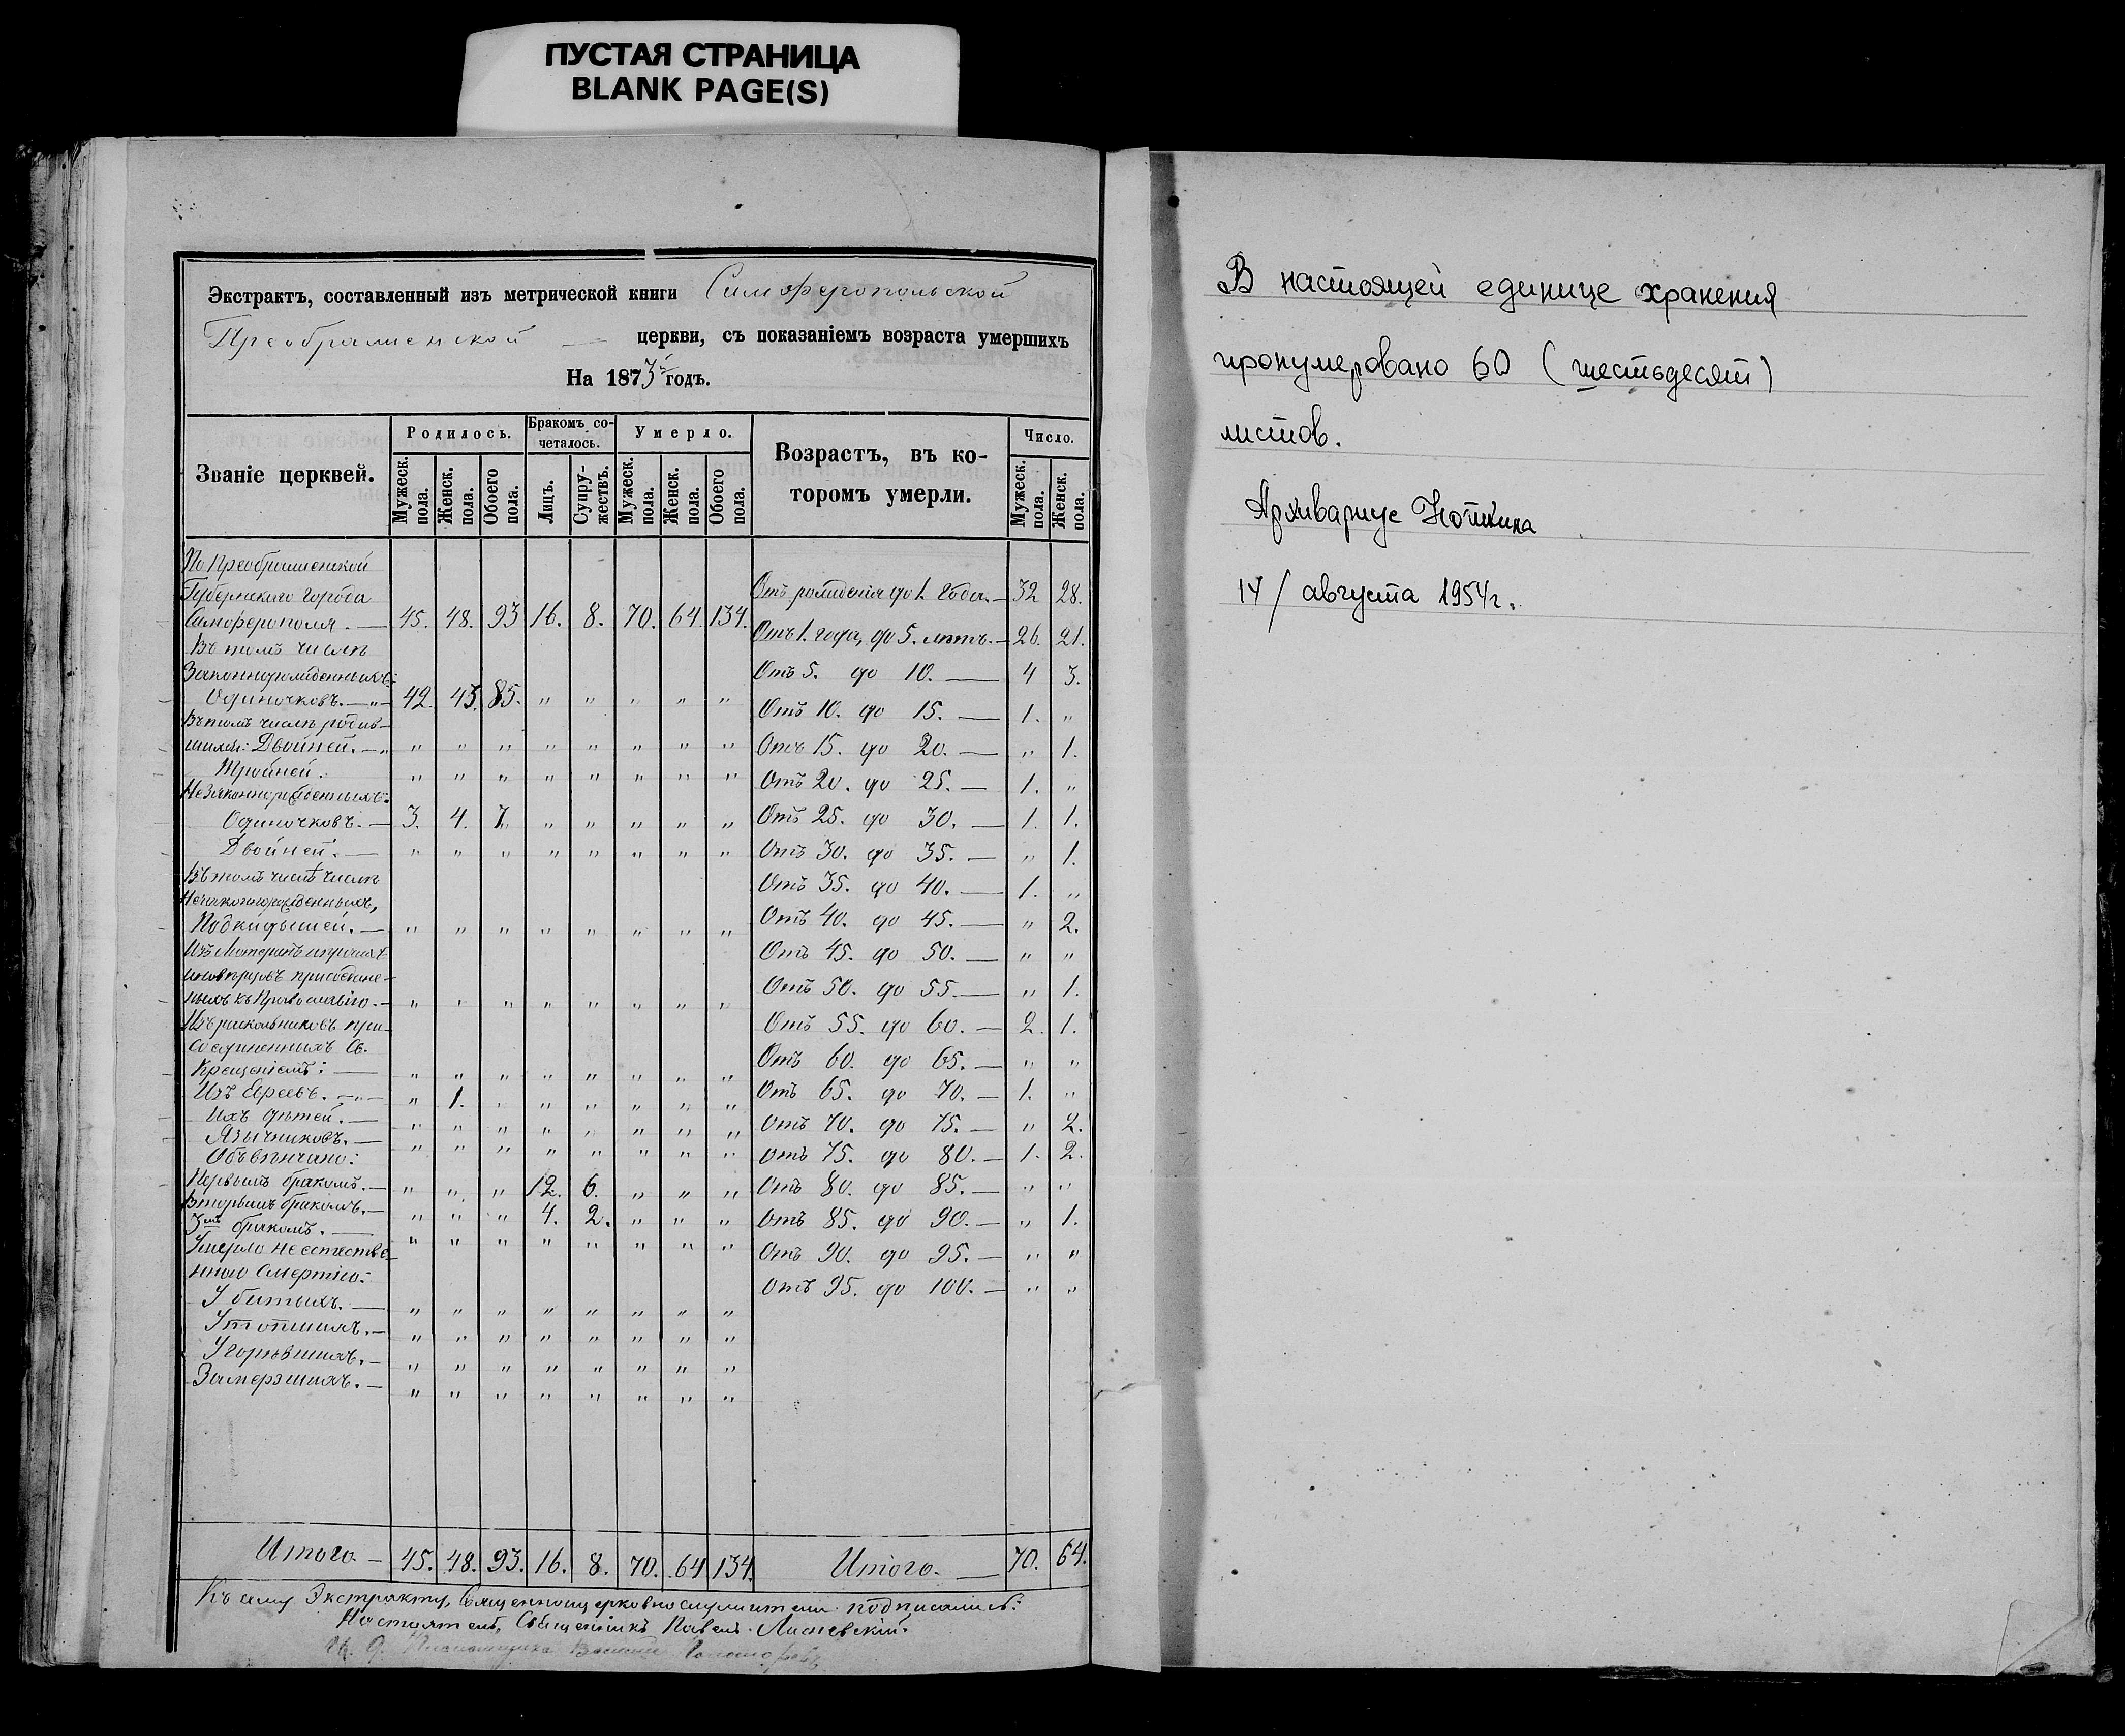 ПУСТАЯ СТРАНИЦА
BLANK PAGE(S)
Экстрактъ, составленный изъ метрической книги Симферопольской
Преображенской — церкви, съ показаніемъ возраста умершихъ
На 1873й годъ.
Званіе церквей.
Родилось.
Бракомъ со-
четалось.
Умерло.
Возрастъ, въ ко-
торомъ умерли.
Число.
Мужеск. пола.
Женск. пола.
Обоего пола.
Лицъ.
Супру-
жествъ.
Мужеск. пола.
Женск. пола.
Обоего пола.
Мужеск. пола.
Женск. пола.
По Преображенской
Губернскаго города
Симферополя. — 45. 48. 93 16. 8. 70. 64. 134.
Въ томъ числѣ
Законнорожденныхъ:
Одиночковъ. — 42. 43. 85. " " " " "
Въ томъ числѣ родив-
шихся: Двойней. — " " " " " " " "
Тройней. " " " " " " " "
Незаконнорожденныхъ:
Одиночковъ. — 3. 4. 7. " " " " "
Двойней. — " " " " " " " "
Въ томъ числѣ
Незаконнорожденныхъ,
Подкидышей. — " " " " " " " "
иновѣрцевъ присоедине-
ныхъ къ Православію. — " " " " " " " "
Изъ раскольниковъ при-
соединенныхъ Св.
Крещеніемъ: — " " " " " " " "
Изъ Евреевъ. — " 1. " " " " " "
Ихъ дѣтей. — " " " " " " " "
Язычниковъ. — " " " " " " " "
Обвѣнчано:
Первымъ бракомъ. — " " " 12. 6. " " "
Вторымъ бракомъ. — " " " 4. 2. " " "
3мъ бракомъ. — " " " " " " " "
Умерло неестестве-
нною смертію:
Убитыхъ. — " " " " " " " "
Утопшихъ. — " " " " " " " "
Угорѣвшихъ. — " " " " " " " "
Замерзшихъ. — " " " " " " " "
Отъ рожденія до 1. года. — 32 28.
Отъ 1. года, до 5. лѣтъ. — 26. 21.
Отъ 5. до 10. — 4 3.
Отъ 10. до 15. — 1. "
Отъ 15. до 20. — " 1.
Отъ 20. до 25. — 1. "
Отъ 25. до 30. — 1. 1.
Отъ 30. до 35. — " 1.
Отъ 35. до 40. — 1. "
Отъ 40. до 45. — " 2.
Отъ 45. до 50. — " "
Отъ 50. до 55. — " 1.
Отъ 55. до 60. — 2. 1.
Отъ 60. до 65. — " "
Отъ 65. до 70. — 1. "
Отъ 70. до 75. — " 2.
Отъ 75. до 80. — 1. 2.
Отъ 80. до 85. — " "
Отъ 85. до 90. — " 1.
Отъ 90. до 95. — " "
Отъ 95. до 100. — " "
Итого — 45. 48. 93. 16. 8. 70. 64 134. Итого. — 70. 64.
Къ сему Экстракту, Священноцерковнослужители подписались:
Настоятель, Священникъ Павелъ
И. д. Псаломщика Василій
В настоящей единице хранения
пронумеровано 60 (шестьдесят)
листов.
Архивариус
14/ августа 1954г.